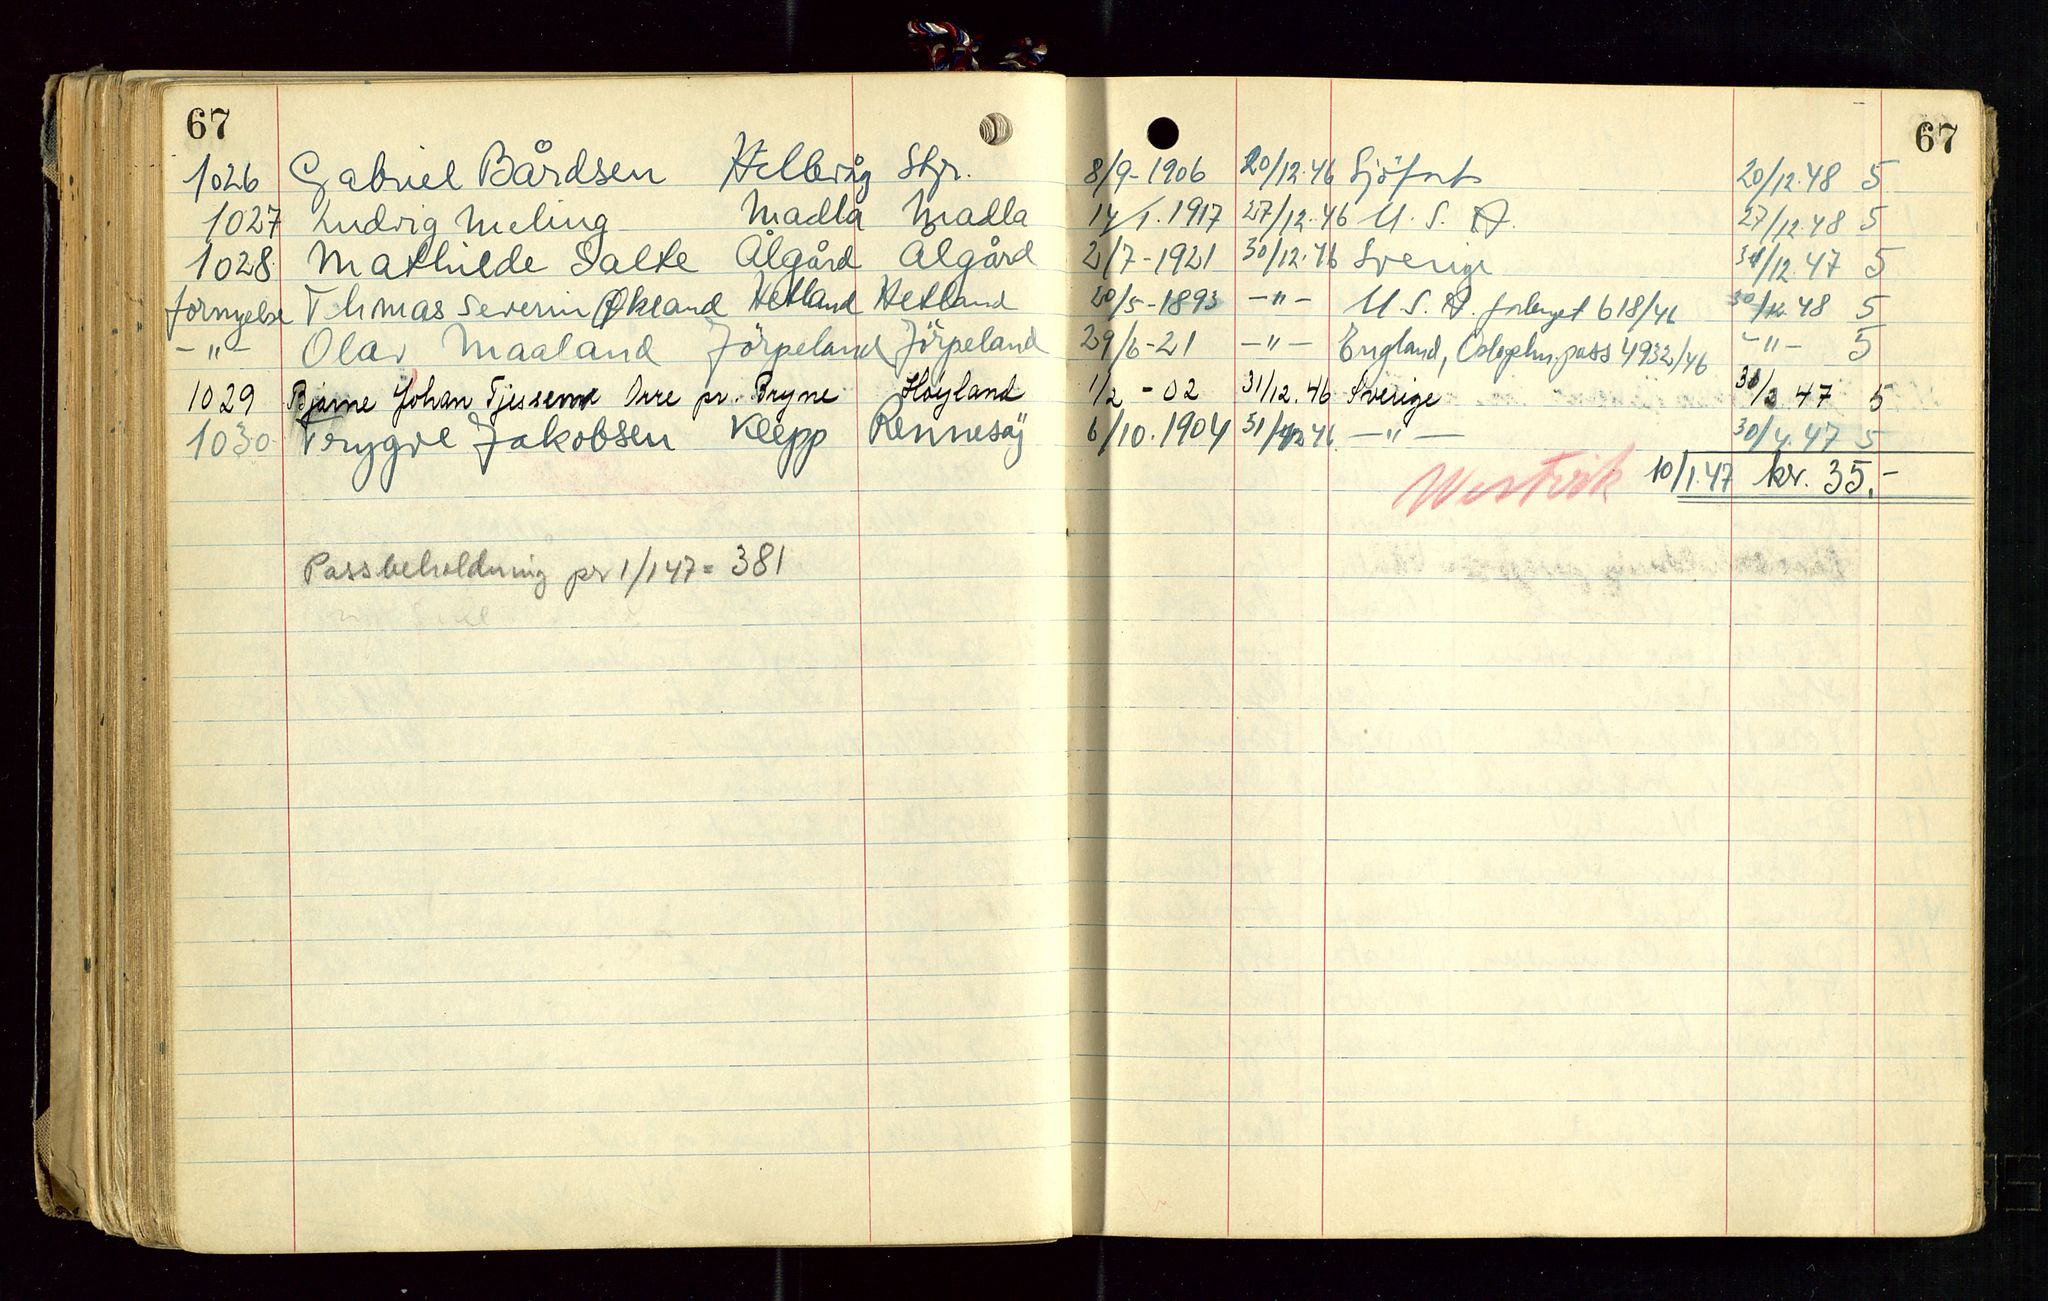 67 67
1026 Gabriel Bårdsen Helleråg Styr. 8/9-1906 20/12.46 Sjöfart 20/12.48 5
1027 Ludvig Meling Madla Madla 14/1.1917 27/12.46 U.S.A. 27/12.48 5
1028 Mathilde Salte Ålgård Ålgård 2/7-1921 30/12.46 Sverige 30/12.47 5
fornyelse Thmas Severin Økland Hetland Hetland 20/5-1893 -"- U.S.A. forlenget 618/46 30/12.48 5
-"- Olav Maaland Jörpeland Jörpeland 29/6-21 -"- England, pass 4932/46 -"- 5
1029 Bjarne Johan Tjessem Orre pr. Bryne Høyland 1/2-02 31/12.46 Sverige 47 5
1030 Trygve Jakobsen Klepp Rennesøy 6/10.1904 31/12 46 -"- 30/4.47 5
Westvik 10/1.47 kr. 35.-
Passbeholdning pr 1/1 47 = 381